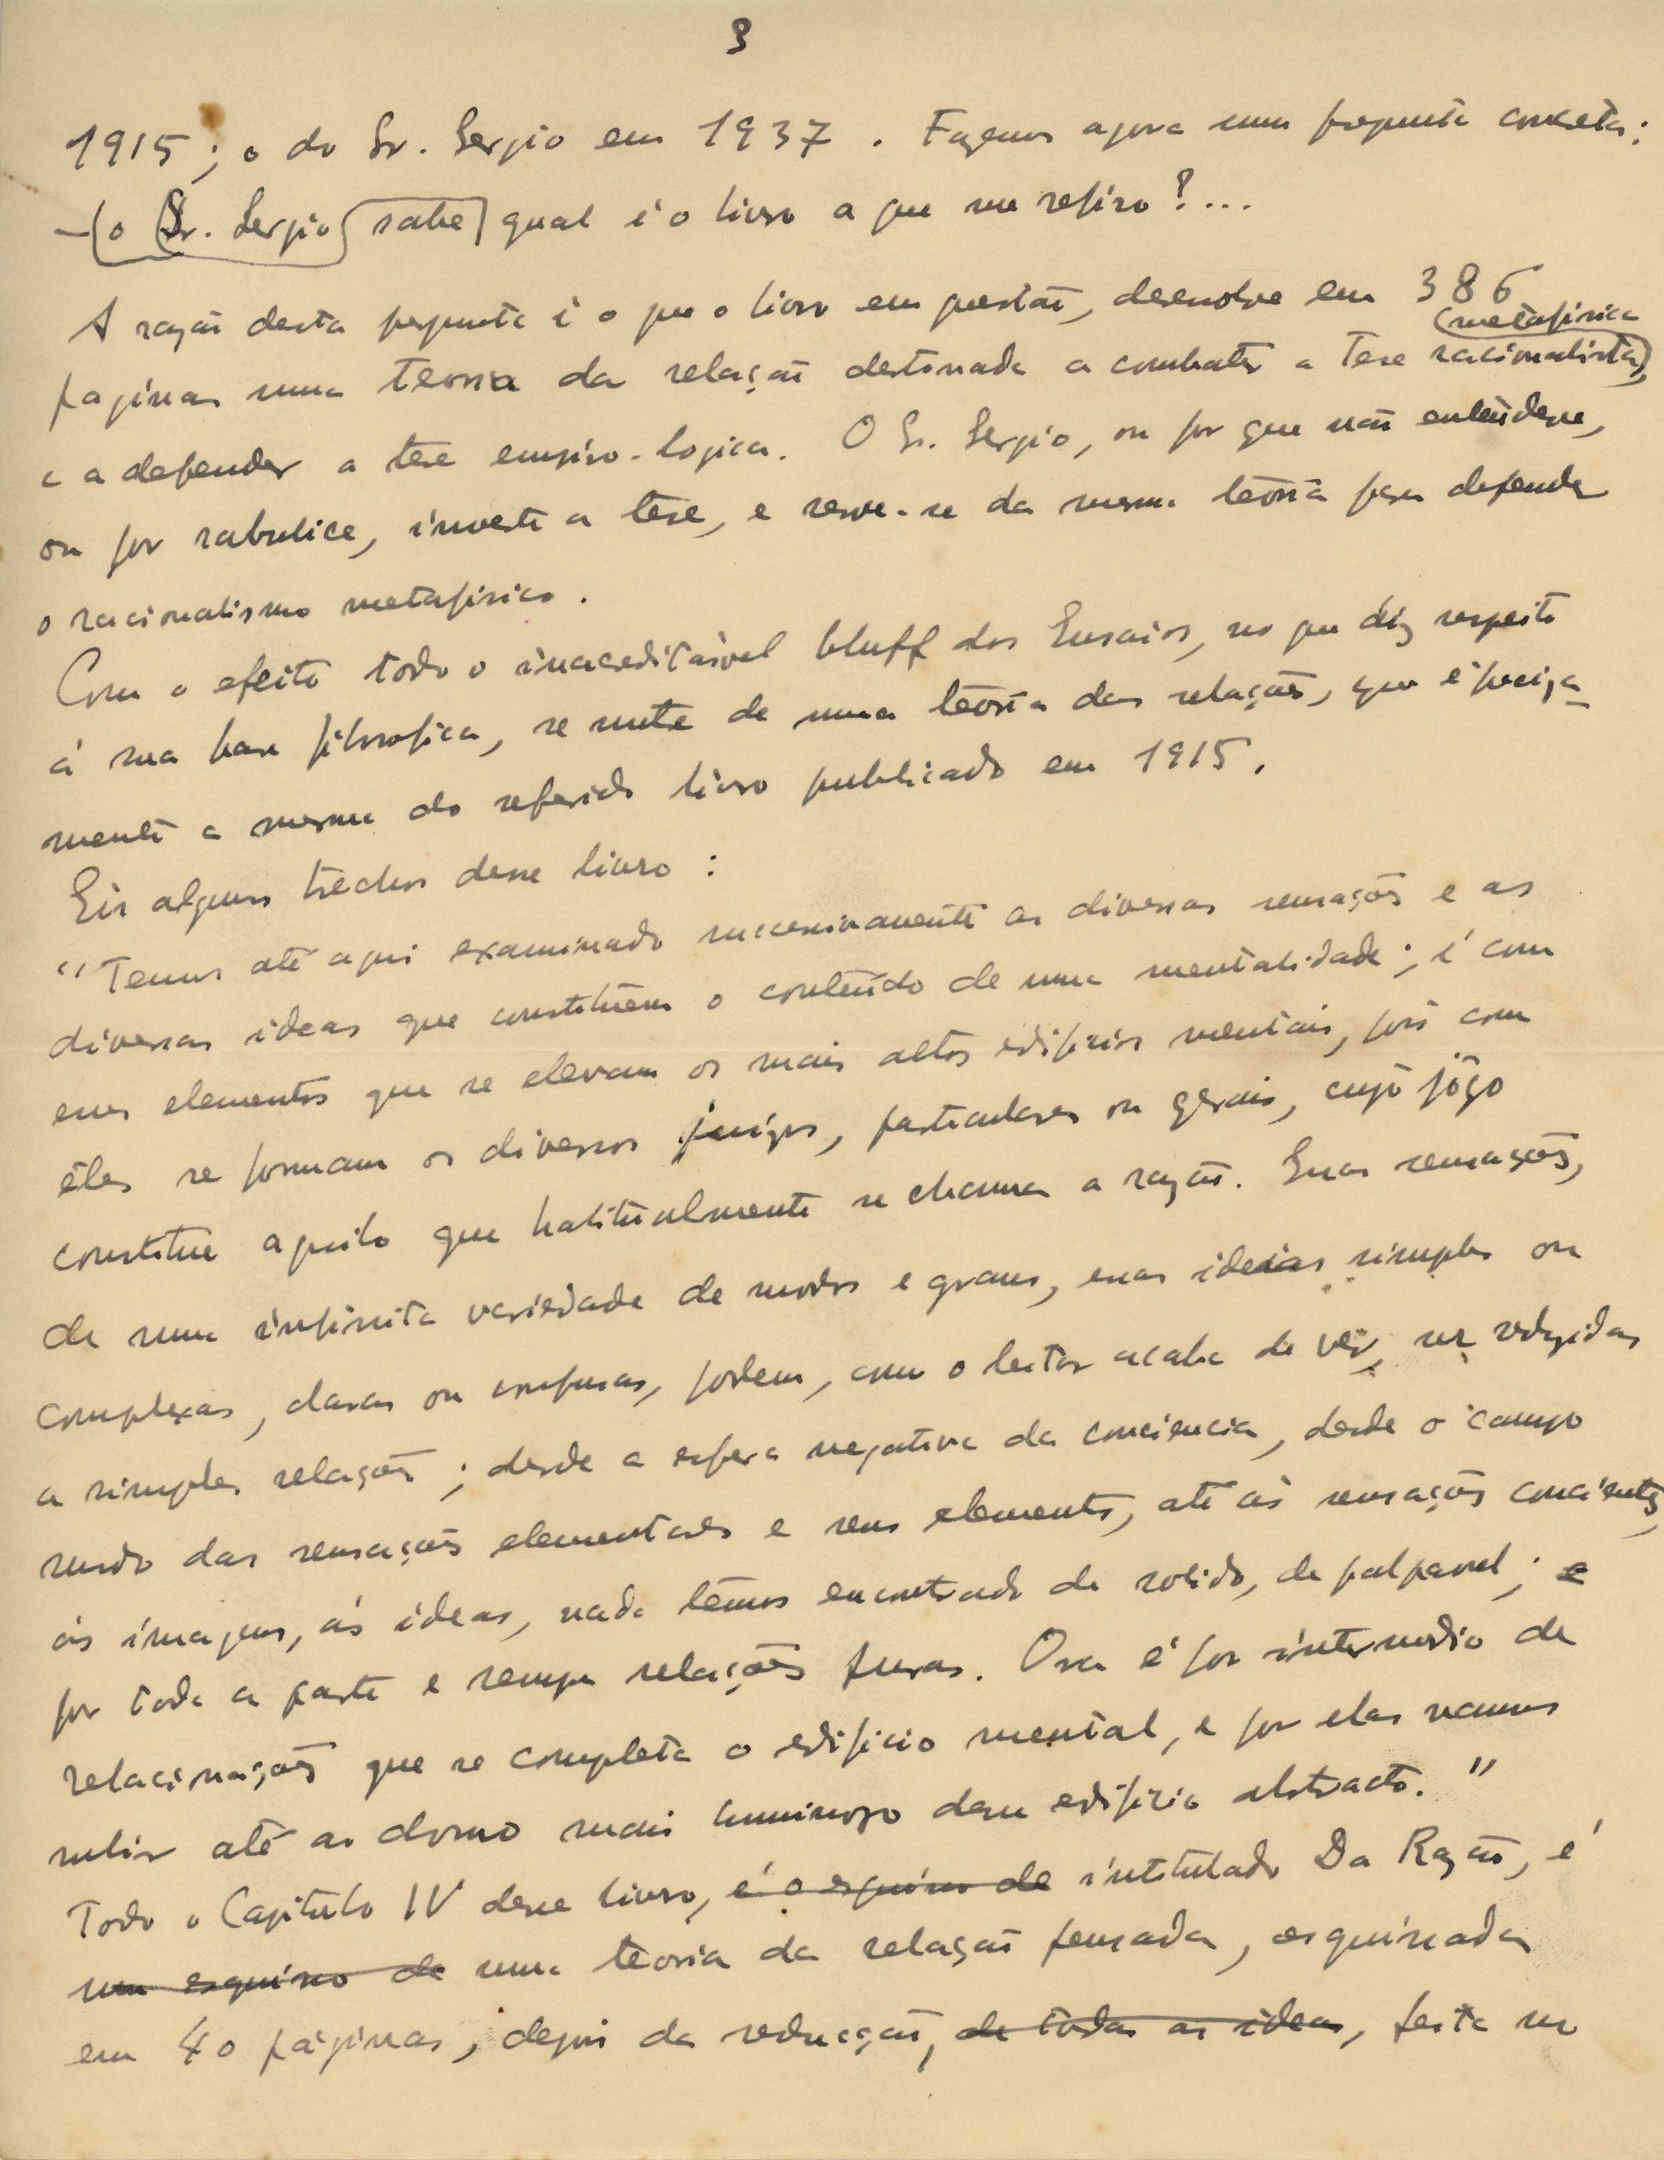 3
1915; o do Sr. Sergio em 1937. Façamos agora uma pregunta concreta:
— o Sr. Sergio sabe qual é o livro a que me refiro?...
A razão desta pregunta é o que o livro em questão, desenvolve em 386
metafisica
paginas uma teoria da relação destinada a combater a tese racionalista,
e a defender a tese empiro-logica. O Sr. Sergio, ou por que não entendesse,
ou por rabulice, inverte a tese, e serve-se da mesma teoria para defender
o racionalismo metafisico.
Com o efeito todo o inacreditável bluff dos Ensaios, no que diz respeito
á sua base filosofica, se nutre de uma teoria das relações, que é preciza-
mente a mesma do referido livro publicado em 1915.
Eis alguns trechos desse livro:
"Temos até aqui examinado sucessivamente as diversas sensações e as
diversas ideas que constituem o conteúdo de uma mentalidade; é com
esses elementos que se elevam os mais altos edificios mentais, pois com
êles se formam os diversos juizos, particulares ou gerais, cujo jôgo
constitue aquilo que habitualmente se chama a razão. Essas sensações,
de uma infinita variedade de modos e graus, essas ideias simples ou
complexas, claras ou confusas, podem, como o leitor acaba de vêr, ser reduzidas
a simples relações; desde a esfera negativa da conciencia, desde o campo
surdo das sensações elementares e seus elementos, até ás sensações concientes,
ás imagens, ás ideas, nada têmos encontrado de solido, de palpavel; e
por toda a parte e sempre relações puras. Ora é por intermedio de
relacionações que se completa o edificio mental, e por elas vamos
subir até ao domo mais luminoso desse edificio abstracto."
Todo o Capitulo IV desse livro, é o esquisso de intitulado Da Razão, é
um esquisso de uma teoria da relação pensada, esquissada
em 40 páginas, depois da reducção, de todas as ideas, feita no